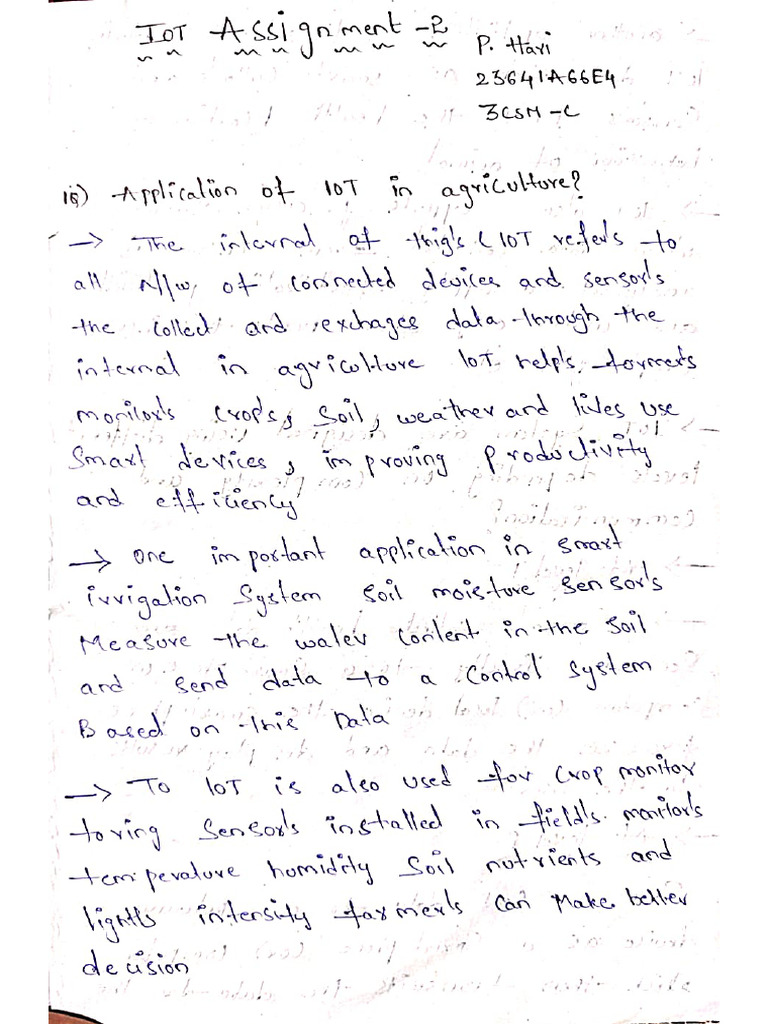 IoT Assignment -2
P. Hari
23641A66E4
3CSM-C
1Q) Application of IOT in agriculture?
→ The internal of thig's (IOT refer's to
all N/w of connected devices and sensor's
the collect and exchages data through the
internal in agriculture IOT help's formers
monitor's crop's, soil, weather and lives use
Smart devices, improving productivity
and efficiency
→ One important application in smart
irrigation System soil moisture sensor's
Measure the water content in the soil
and send data to a control system
Based on this Data
→ To IOT is also used for crop monitor
toring sensor's installed in field's monitor's
temperature humidity soil nutrients and
lights intensity farmer's can Make better
decision